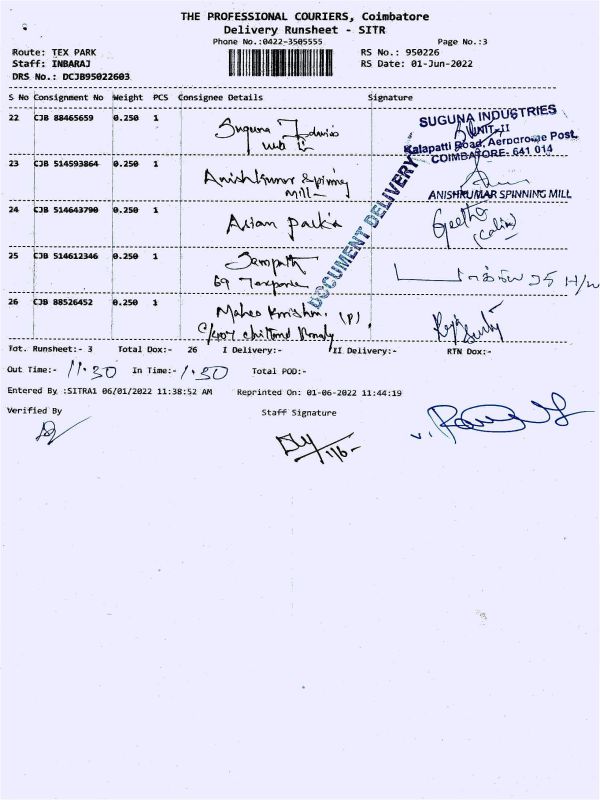 THE PROFESSIONAL COURIERS, Coimbatore
Delivery Runsheet - SITR
Phone No.:0422-3505555 Page No.:3
Route: TEX PARK RS No.: 950226
Staff: INBARAJ RS Date: 01-Jun-2022
DRS No.: DCJB95022603
S No Consignment No Weight PCS Consignee Details Signature
22 CJB 88465659 0.250 1 Suguna
SUGUNA INDUSTRIES
UNIT-II
Kalapatti Road, Aerodrome Post,
COIMBATORE- 641 014
23 CJB 514593864 0.250 1 Anishkumar Spinning
Mill
ANISHKUMAR SPINNING MILL
DOCUMENT DELIVERY
24 CJB 514643790 0.250 1 Asian Geetha
25 CJB 514612346 0.250 1
69
26 CJB 88526452 0.250 1 (P)
Tot. Runsheet:- 3 Total Dox:- 26 I Delivery:- II Delivery:- RTN Dox:-
Out Time:- 11.30 In Time:- 1.30 Total POD:-
Entered By :SITRA1 06/01/2022 11:38:52 AM Reprinted On: 01-06-2022 11:44:19
Verified By Staff Signature